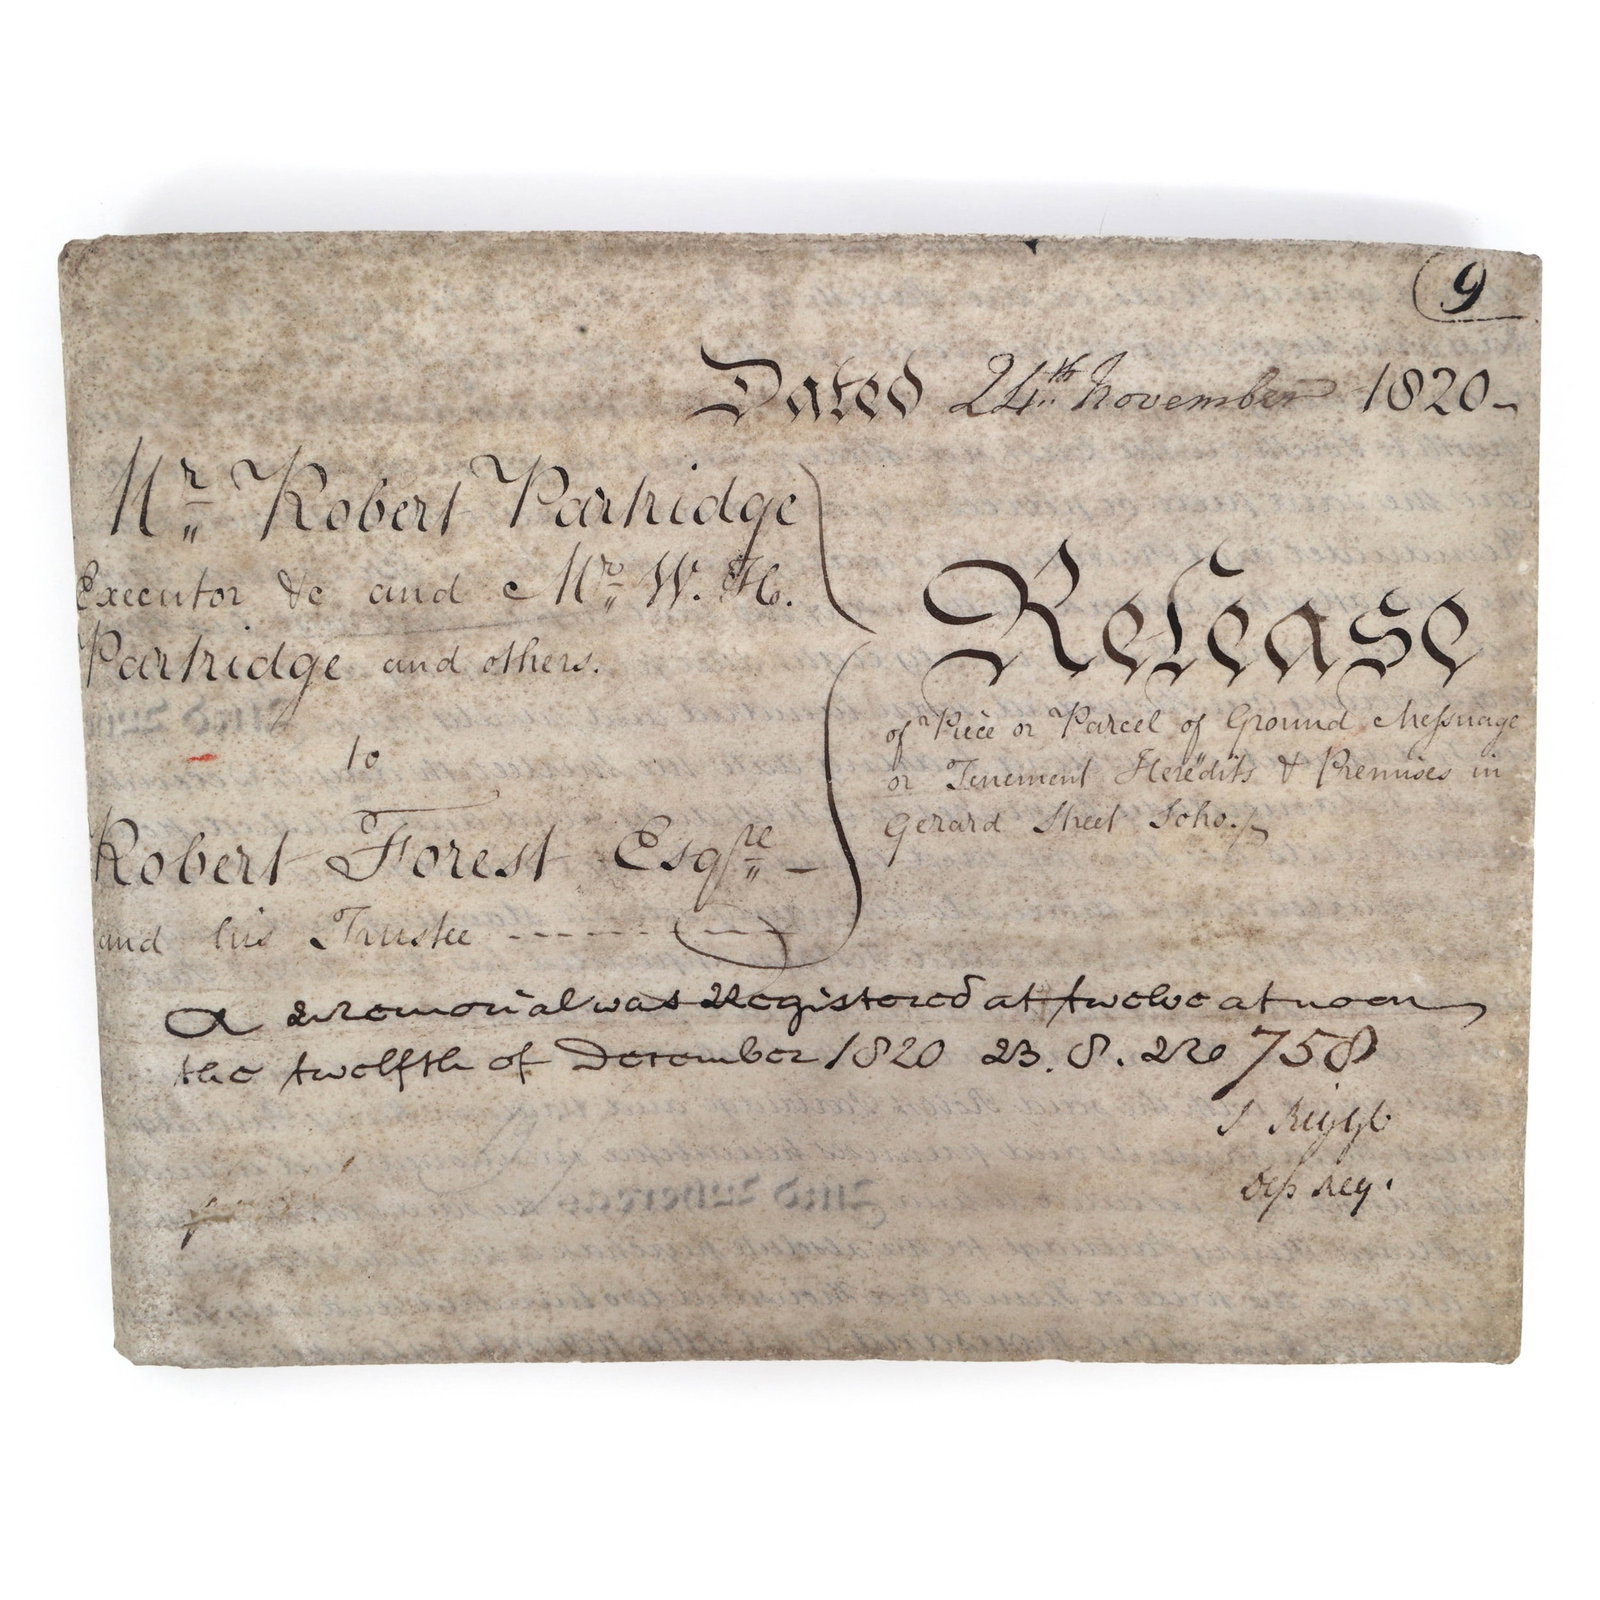 9
Dated 24th November 1820
Mr Robert Partridge
Executor &c and Mr W. H.
Partridge and others.
to
Robert Forest Esqre
and his Trustee
Release
of Piece or Parcel of Ground Messuage
or Tenement Heredits & Premises in
Gerard Street Soho.
A Memorial was Registered at twelve at noon
the twelfth of December 1820 B. 8. No 758
Dep Reg.